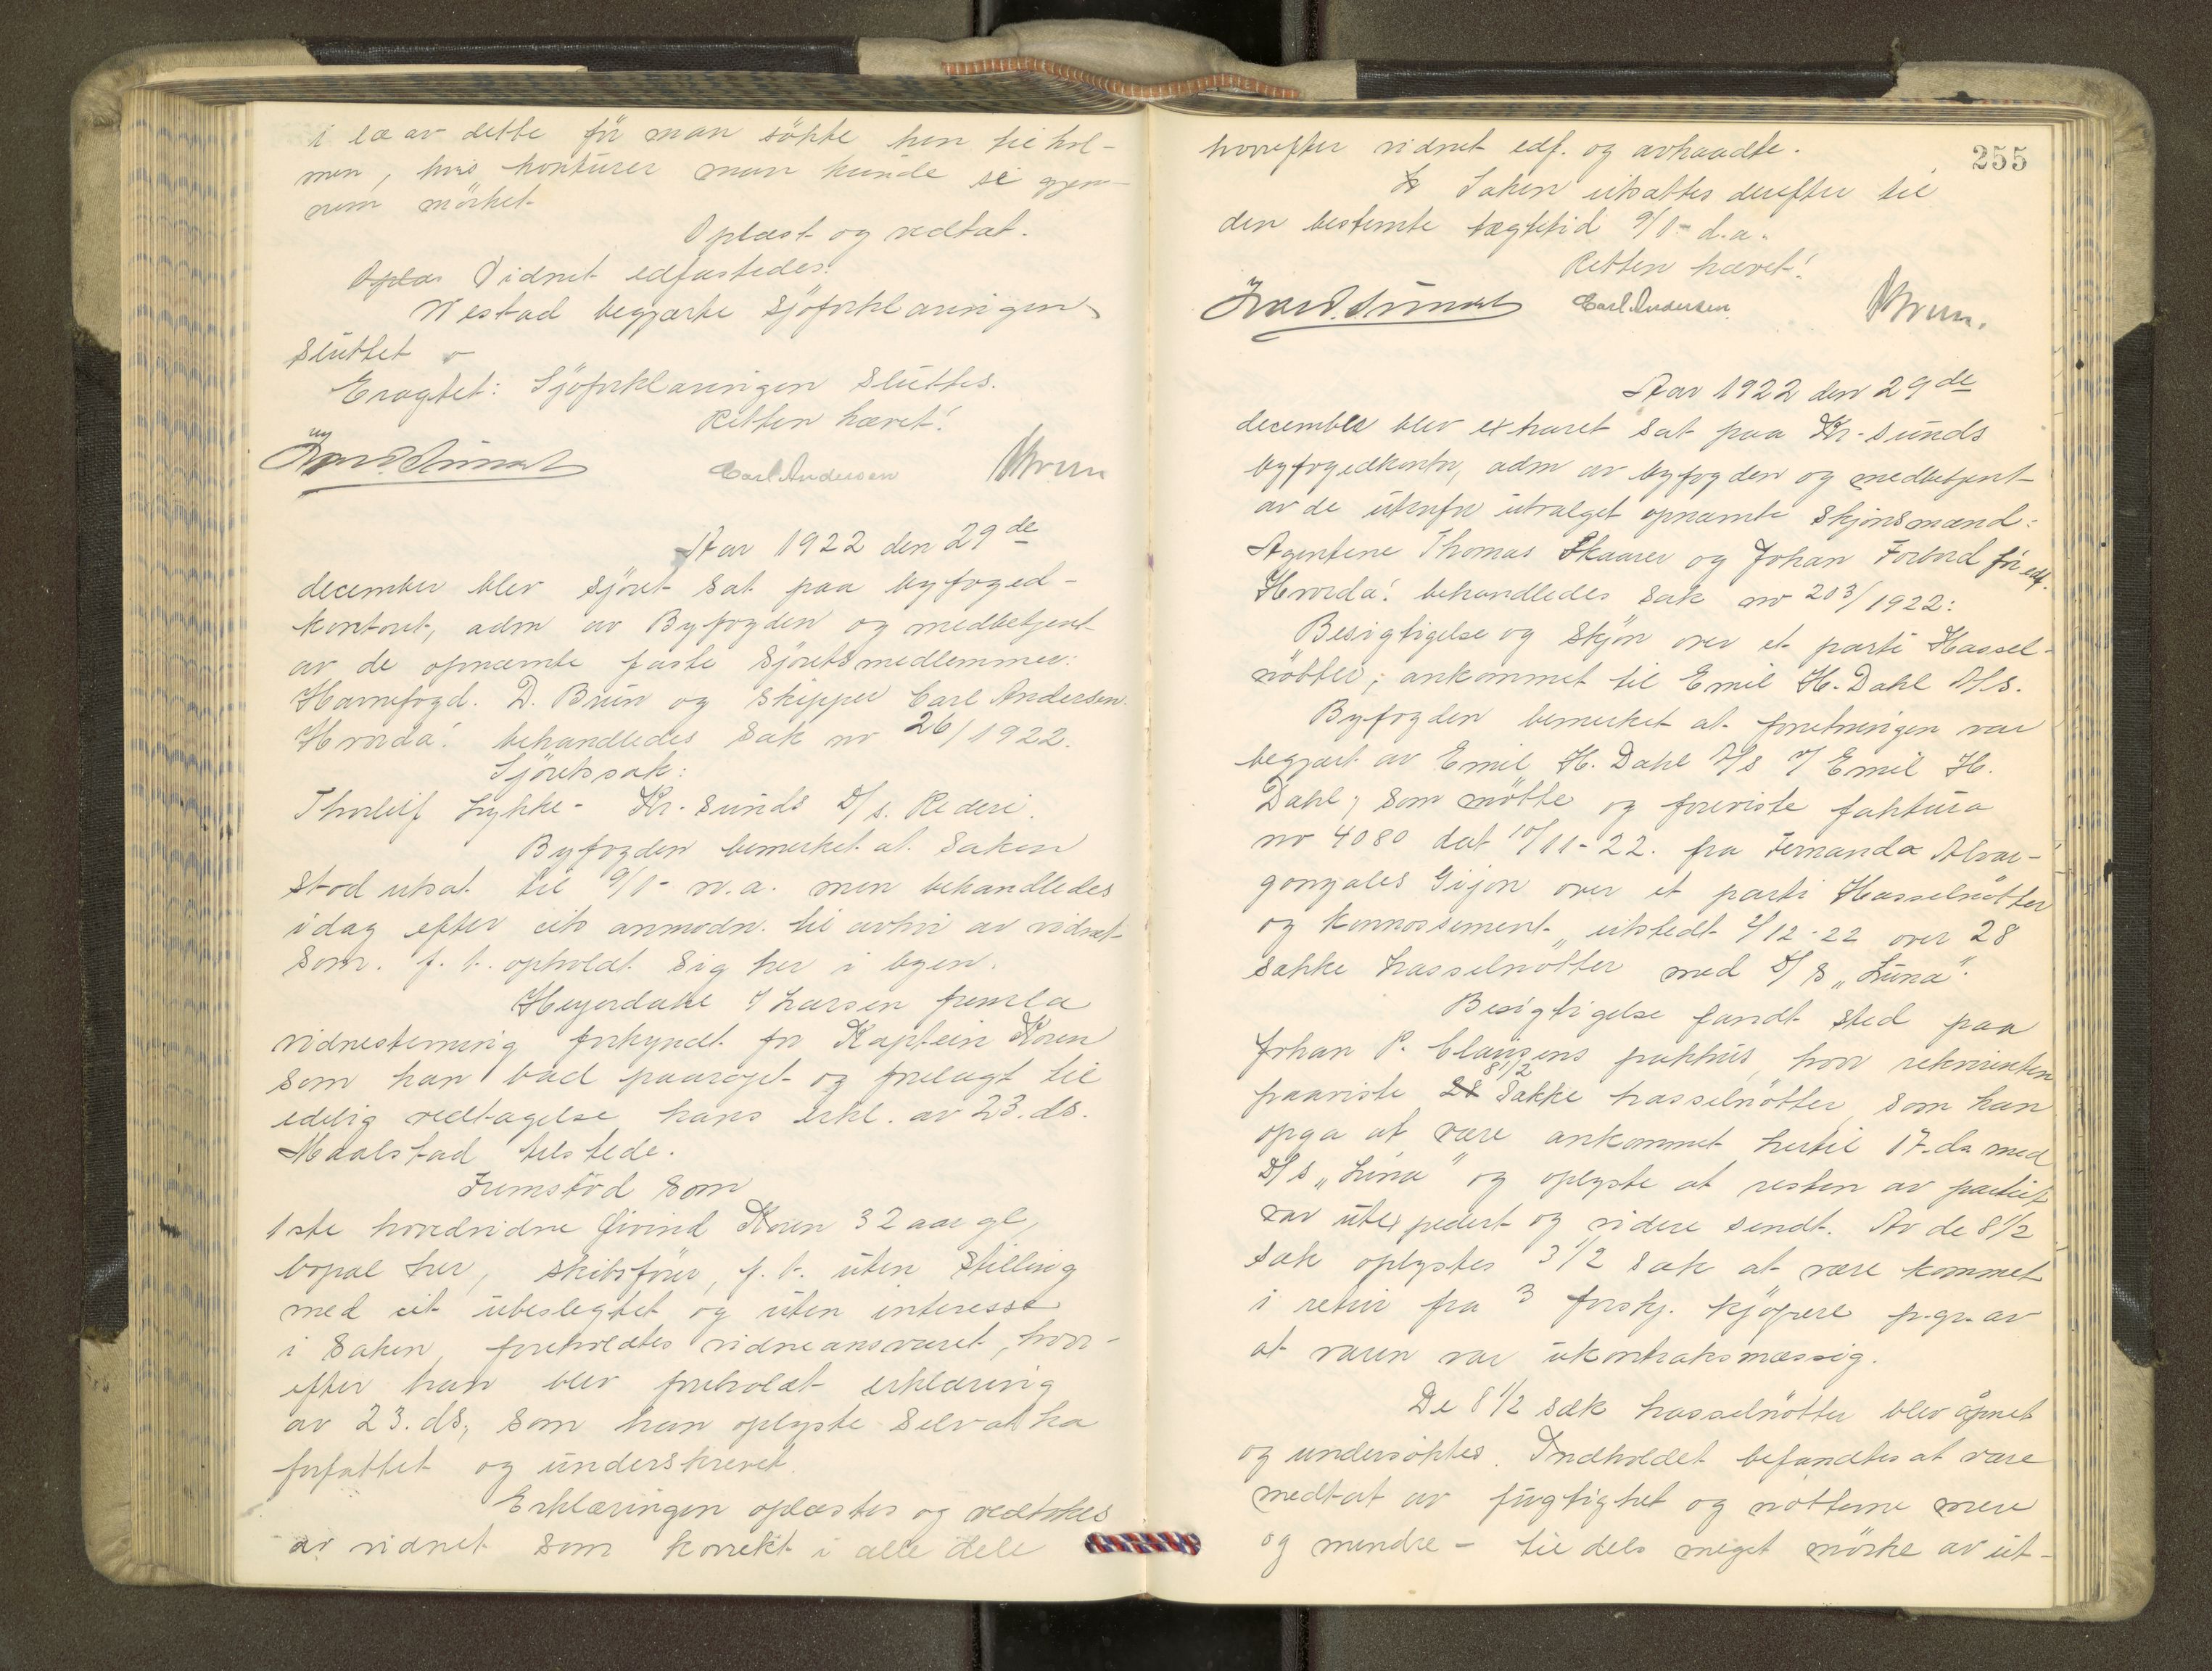 i læ av dette før man søkte hen til hol-
men, hvis konturer man kunde se gjen-
nem mørket.
Oplæst og vedtat.
Oplæs Vidnet edfæstedes.
Nestad begjærte sjøforklaringen
sluttet
Eragtet: Sjøforklaringen sluttes.
Retten hævet!
Carl Andersen DBrun
Aar 1922 den 29de
december blev sjøret sat paa byfoged-
kontoret, adm av Byfogden og medbetjent
av de opnævnte faste sjøretsmedlemmer:
Havnefogd. D. Brun og skipper Carl Andersen.
Hvorda! behandledes Sak nr 26/1922.
Sjøretssak:
Thorleif Lykke - Kr.sunds D/s. Rederi.
Byfogden bemerket at Saken
stod utsat til 9/1- n.a. men behandledes
idag efter cits anmodn. til avhør av vidnet
som. f. t. opholdt sig her i byen.
Heyerdahl v/ Larsen fremla
vidnestevning forkyndt for Kaptein Koren
som han bad paaraapt og forelagt til
edelig vedtagelse hans erkl. av 23. ds.
Maalstad tilstede.
Fremstod som
1ste hovedvidne Øivind Koren 32 aar gl,
bopæl her, skibsfører, f. t. uten stilling
med cit ubeslegtet og uten interesse
i Saken, foreholdtes vidneansvaret, hvor-
efter han blev foreholdt erklæring
av 23. ds, som han oplyste selv at ha
forfattet og underskrevet.
Erklæringen oplæstes og vedtokes
av vidnet som korrekt i alle dele
255
hvorefter vidnet edf. og avhaadte.
Saken utsattes derefter til
den bestemte tægtetid 9/1- d.a.
Retten hævet!
Carl Andersen. DBrun.
Aar 1922 den 29de
december blev extraret sat paa Kr-sunds
byfogedkontor, adm av byfogden og medbetjent
av de utenfor utvalget opnævnte skjønsmænd:
Agentene Thomas Skaarer og Johan Forbord før edf.
Hvorda! behandledes Sak nr 203/1922:
Besigtigelse og skjøn over et parti Hassel-
nøtter; ankommet til Emil H. Dahl A/S.
Byfogden bemerket at forretningen var
begjært av Emil H. Dahl A/S v/ Emil H.
Dahl, som møtte og foreviste faktura
nr 4080 dat 10/11-22. fra Fernanda Alvar-
gonzales Gijon over et parti Hasselnøtter
og konnossement utstedt 2/12-22 over 28
sække hasselnøtter med D/S "Luna".
Besigtigelse fandt sted paa
Johan P. Clausens pakhus, hvor rekvirenten
paaviste 28 8 1/2 sække hasselnøtter, som han
opga at være ankommet hertil 17-ds med
D/S "Luna" og oplyste at resten av partiet
var utexpedert og videre sendt. Av de 8 1/2
sæk oplystes 3 1/2 sæk at være kommet
i retur fra 3 forskj. kjøpere p.gr. av
at varen var ukontraktsmæssig.
De 8 1/2 sæk hasselnøtter blev åpnet
og undersøktes. Indholdet befandtes at være
medtat av fugtighet og nøtterne mere
og mindre - tildels meget mørke av ut-